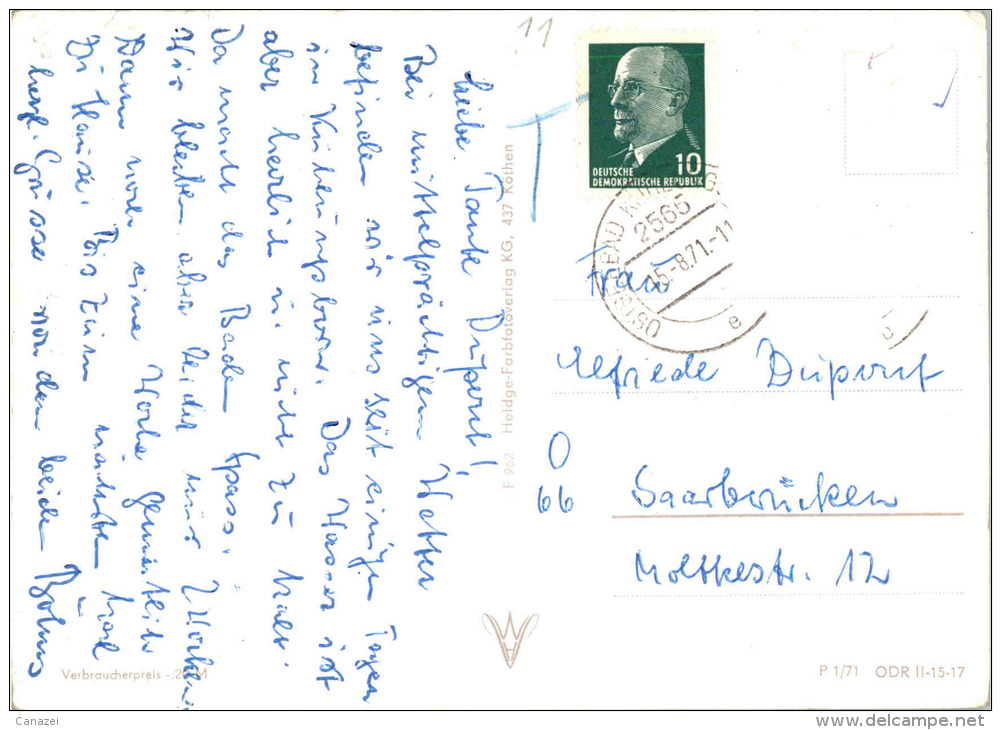 11
T
DEUTSCHE
DEMOKRATISCHE REPUBLIK
10
OSTSEEBAD
2565
15.-8.71.-11
e
e
Liebe Tante Dupont!
Bei mittelprächtigem Wetter
befinden wir uns seit einigen Tagen
in Kühlungsborn. Das Wasser ist
aber herrlich u. nicht zu kalt.
Da macht das Baden Spass.
Wir bleiben aber leider nur 2 Wochen
Dann noch eine Woche Gemütlich
zu Hause. Bis zum nächsten Mal
herzl. Grüsse von den beiden
Verbraucherpreis -.20 M
F 962 Heldge-Farbfotoverlag KG, 437 Köthen
Frau
Elfriede Dupont
66
Saarbrücken
Moltkestr. 12
P 1/71 ODR II-15-17
Canazei
www.delcampe.net